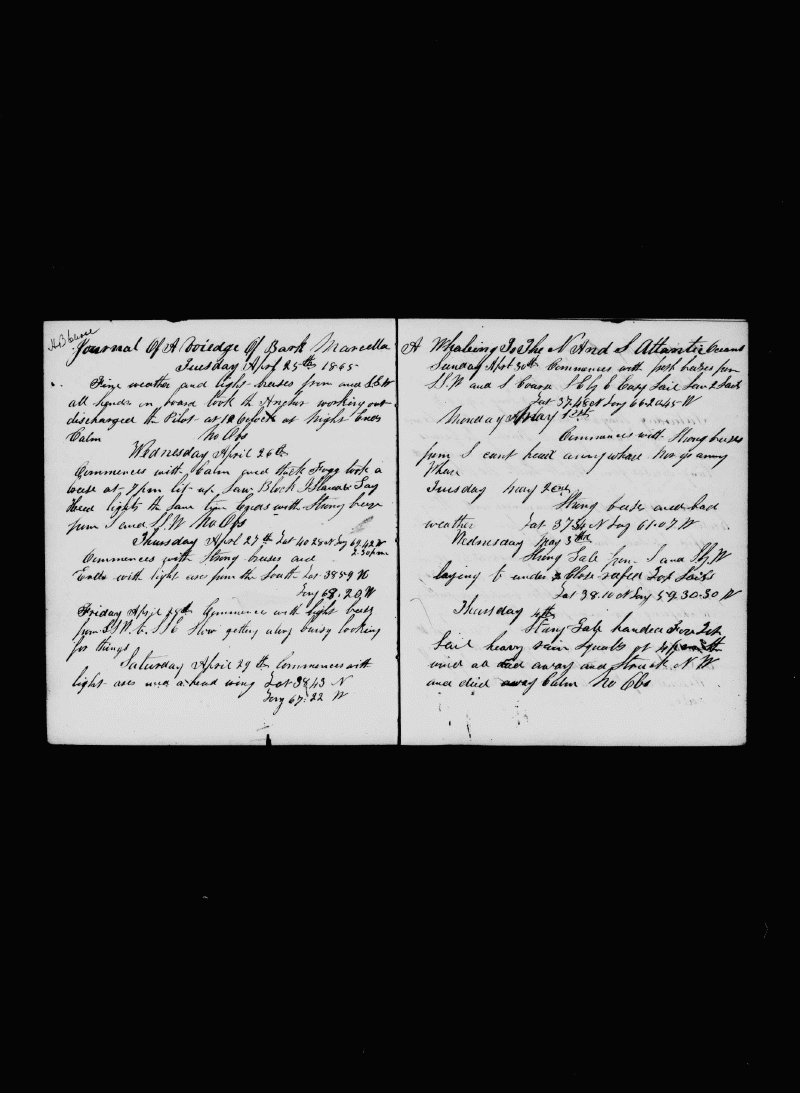 H B Chase
Journal Of A Voiedge Of Bark Marcella
Tuesday April 25th 1865
Fine weather and light breeses from and S.S.W
all hands on board took the Anchor working out
discharged the Pilot at 12 Oclock at Night Ends
Calm No Obs
Wednesday April 26th
Commences with Calm and thick Fogg took a
breese at 7 pm lit up Saw Block Island & Gay
Head lights the Same time Ends with Strong breeze
from S and S.S.W No Obs
Thursday April 27th Lat 40.28 N Long 69.42 W
2.30 pm
Commences with Strong breeses and
Ends with light ares from the South Lat 38.59 N
Long 68.20 W
Friday April 28th Commence with light breeses
from S.S.W. to S.S.E Slow getting along buisy looking
for things
Saturday April 29th Commences with
light ares and a head wing Lat 38.43 N
Long 67.22 W
A Whaleing To The N And S Atlantic Oceans
Sunday April 30th Commences with fresh breeses from
S.S.W and S Course S E by E Easy Sail Saw 2 Sails
Lat 37.48 N Long 66.20.45 W
Monday May 1st
Commences with Strong breeses
from S cant head any where Nor go anny
Whare
Tuesday May 2ond
Strong breese and bad
weather Lat 37.34 N Long 61.07 W
Wednesday May 3rd
Strong Gale from S and S by W
laying to under Close reafed Top Sails
Lat 38.10 N Long 59.30.30 W
Thursday 4th
Strong Gale handed Fore Top
Sail heavy rain Squals at 4 pm the
wind all died away and Struck N.W.
and died away Calm No Obs